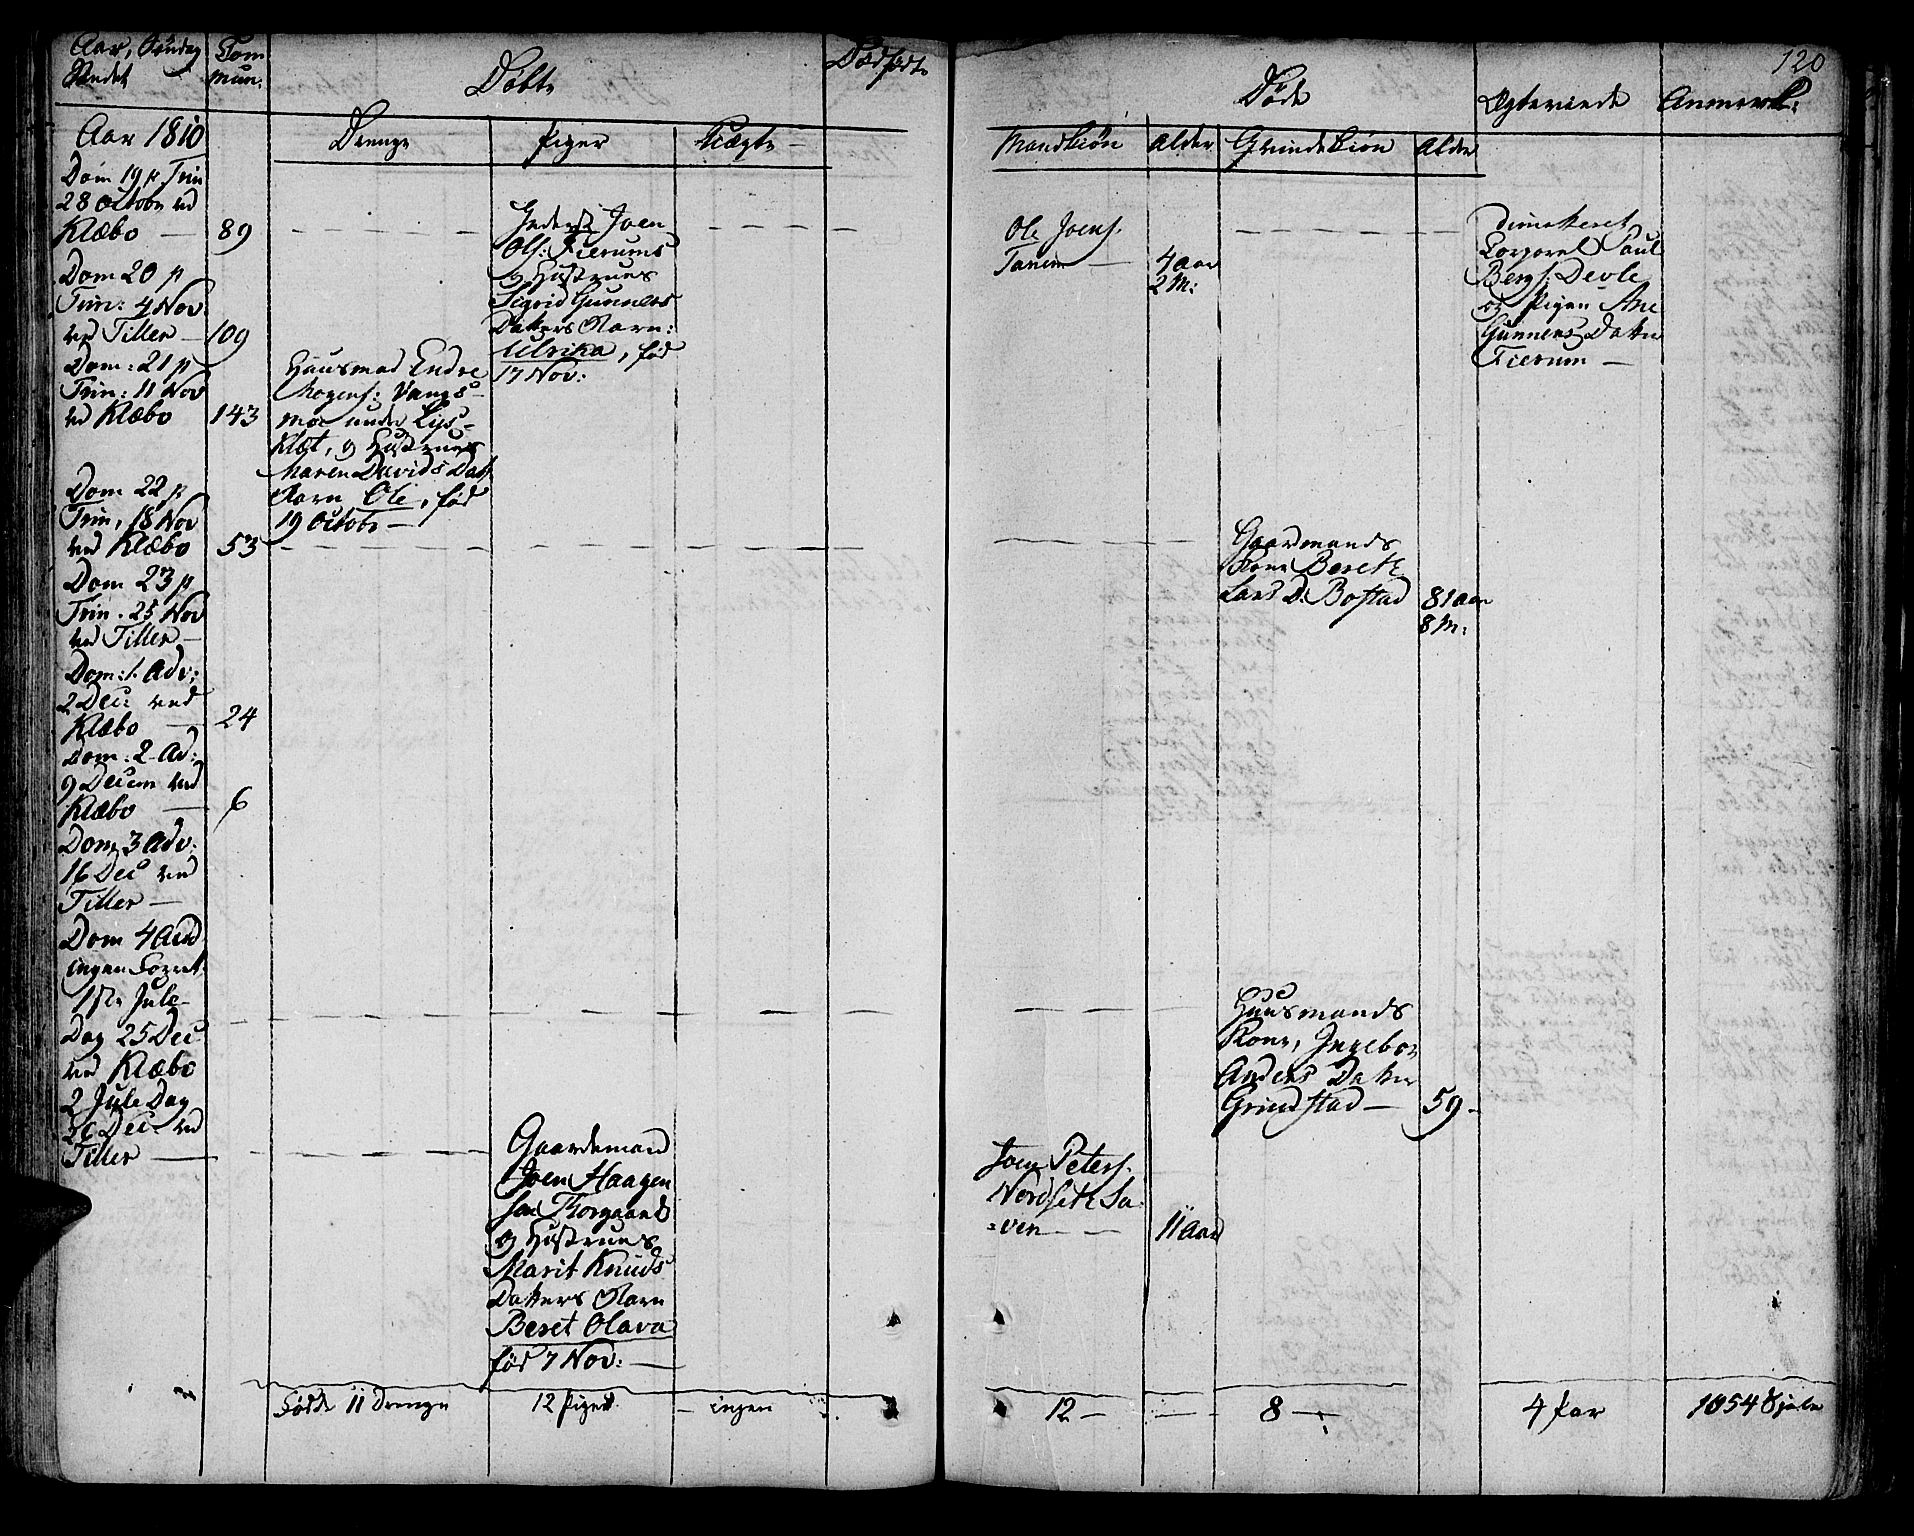 120
Aar, Søndag
Stedet
Com
mun:
Døbte
Dødfødte
Døde
Egteviede
Anmærk:
Aar 1810
Drenge
Piger
Uægte
Mandkiøn
Alder
Qvindekiøn
Alder
Dom 19 p Trin
28 Octobr ved
Klæbo — 89
Dom 20 p
Trin: 4 Nov
ved Tiller — 109
Dom: 21 p
Trin: 11 Nov
ved Klæbo 143
Dom 22 p
Trin, 18 Nov
ved Klæbo 53
Dom 23 p
Trin. 25 Nov
ved Tiller —
Dom: 1. Adv:
2 Dec: ved
Klæbo — 24
Dom: 2 Ad:
9 Decem ved
Klæbo — 6
Dom 3 Adv:
16 Dec ved
Tiller —
Dom 4 Advd
ingen Forret
1ste Jule
Dag 25 Dec
ved Klæbo
2 Jule Dag
26 Dec ved
Tiller —
Huusmad Endre
Mogens: Vangs-
moe under Lys-
klæt, og Hustrues
Maren Davids Datt
Barn Ole, fød
19 Octobr —
Joen
Ols: Fierums
og Hustrues
Sigrid Gunners
Datters Barn:
Ulrika, fød
17 Nov:
Gaardemand
Joen Haagen
sen Thorgaards
og Hustrues
Marit Knuds
Datters Barn
Beret Olava
fød 7 Nov: —
Ole Joens.
Tanem — 4 aar
2 M:
Gaardmands
Kone Beret
Lars D. Bostad 81 aar
8 M:
Huusmands
Kone, Ingebor
Anders Datter
Grindstad — 59 -
Joen Peters.
Nordset Sa-
=ven — 11 aar
Dimitteret
Corporal Paul
Bergs. Devle
og Pigen Ane
Gunners Datter
Fierum —
Fødde 11 Drenge
12 Piger
ingen
12 —
8 —
4 Par
1054 Siæle